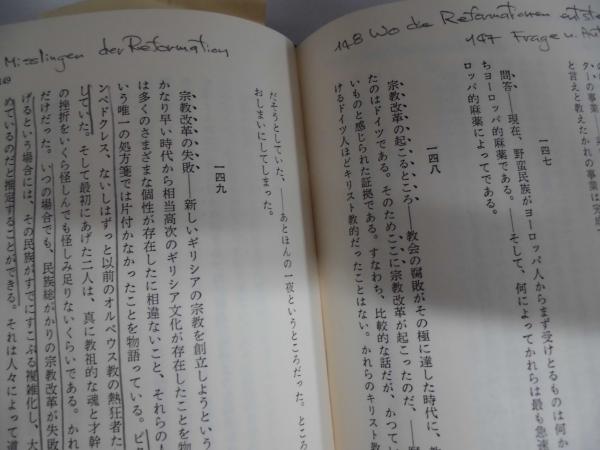 148 Wo die Reformationen entste
147 Frage u. Ant
タ―の事業――
と言えと教えたかれの事業は完
一四七
問答――現在、野蛮民族がヨーロッパ人からまず受けとるものは何か
ちヨーロッパ的麻薬である。――そして、何によってかれらは最も急速
ロッパ的麻薬によってである。
一四八
宗教改革の起こるところ――教会の腐敗がその極に達した時代に、教
たのはドイツである。そのため、ここに宗教改革が起こったのだ、――
いものと感じられた証拠である。すなわち、比較的な話だが、かつてル
けるドイツ人ほどキリスト教的だったことはない。かれらのキリスト教
Misslingen der Reformation
だそうとしていた、――あとほんの一夜というところだった。とこ
おしまいにしてしまった。
一四九
宗教改革の失敗――新しいギリシアの宗教を創立しようという
かなり早い時代から相当高次のギリシア文化が存在したことを物
は多くのさまざまな個性が存在したに相違ないこと、それらの
いう唯一の処方箋では片付かなかったことを物語っている。ピタ
ンペドクレス、ないしはずっと以前のオルペウス教の熱狂者た
していた。そして最初にあげた二人は、真に教祖的な魂と才幹
の挫折をいくら怪しんでも怪しみ足りないくらいである。かれ
だけだった。いつの場合でも、民族総がかりの宗教改革が失敗
げるという場合には、その民族がすでにすこぶる複雑化し、大
めているのだと推定することができる。それは人々によって道